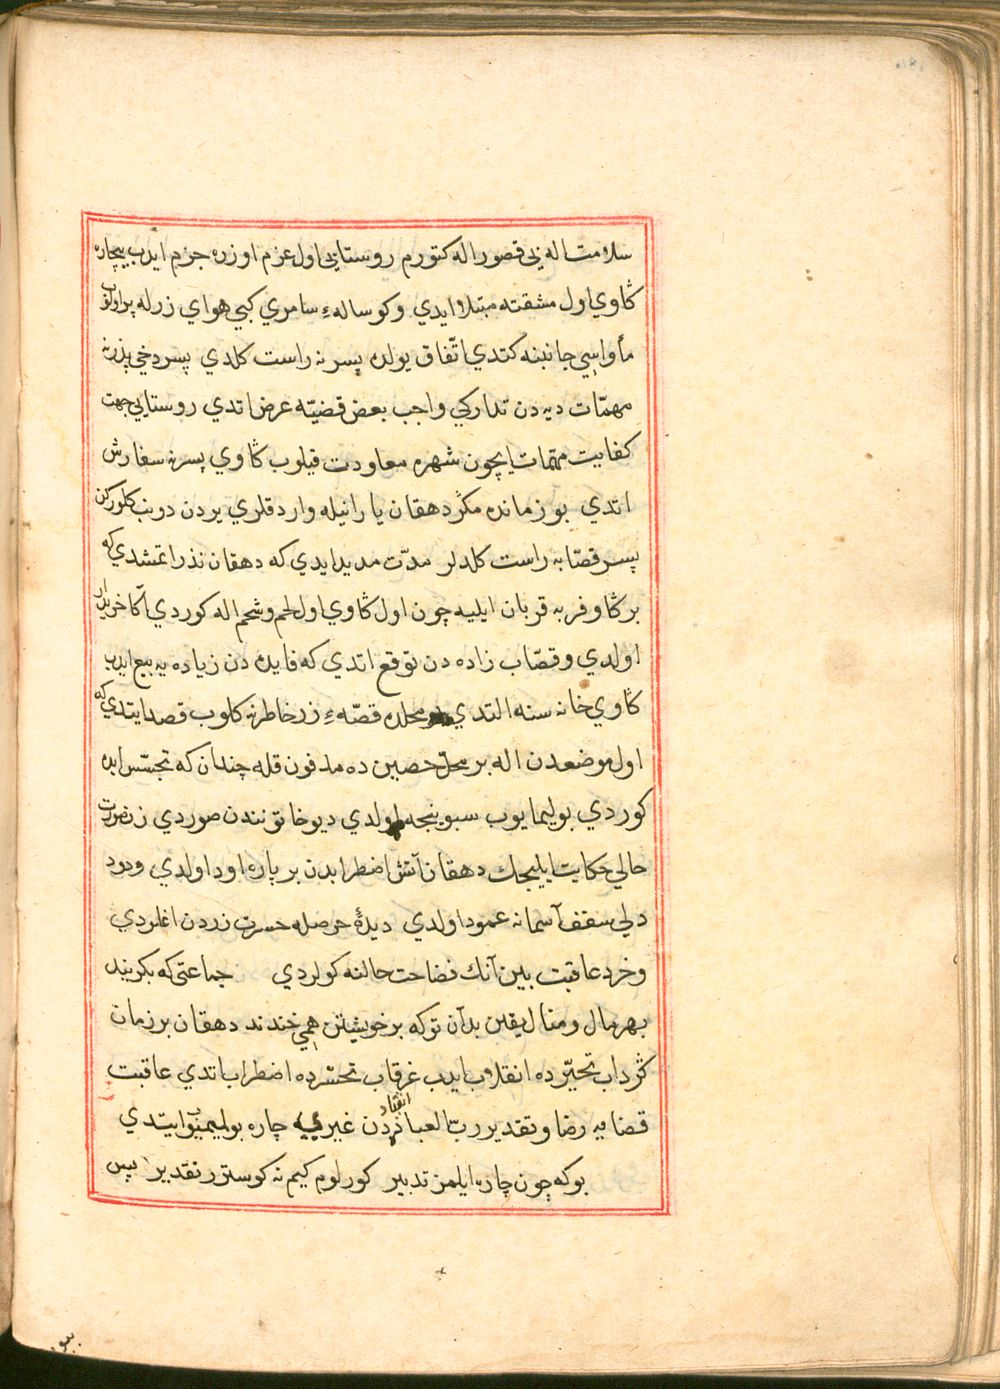 سلامت اله بی قصور اله كتورم روستایی اول عزم اوزره جزم ایدب بیچاره
كاوي اول مشقته مبتلا ایدي وكوساله‌ء سامري كبي هواي زرله پر اولوب
مأواسي جانبنه كتدي اتّفاق یولده پسرنه راست كلدي پسر دخي پدرنه
مهمّات دیه‌دن تداركي واجب بعض قضیّه عرض اتدي روستایي جهت
كفایت مهمّات ایچون شهره معاودت قیلوب كاوي پسرنه سفارش
اتدي بو زمانده مكر دهقان یارانیله واردقلري یردن دونب كلوركن
پسر قصّابه راست كلدلر مدّت مدید ایدي كه دهقان نذر اتمشدي كه
بر كاو فربه قربان ایلیه چون اول كاوي اول لحم وشحم اله كوردي آكا خریدار
اولدي وقصّاب زاده‌دن توقع اتدي كه فایده‌دن زیاده‌یه بیع ایدب
كاوي خانه‌سنه التدي محلده قصّه‌ء زر خاطرنه كلوب قصد ایتدي كه
اول موضعدن اله بر محلّ حصین‌ده مدفون قله چندان كه تجسّس ایده
كوردي بولیمایوب سبو ینجه اولدي دیو خاتونندن صوردي زن صورت
حالي حكایت ایلیجك دهقان آتش اضطرابدن بر پاره اود اولدي ودود
دلي سقف آسمانه عمود اولدي دیدهٔ حرصله حسرت زردن اغلردي
وخرد عاقبت بین آنك فضاحت حالنه كولردي جماعتی كه بكریند
بهر مال ومنال یقین بدان تو كه بر خویشتن همي خندند دهقان بر زمان
كرداب تحیّرده انقلاب ایدب غرقاب تحسّرده اضطراب اتدي عاقبت
قضایه رضا وتقدیر ربّ العباده انقیاددن غیري چاره بولیمیوب ایتدي
بو كه چون چاره ایلمز تدبیر كورلوم كیم نه كوسترر تقدیر پس